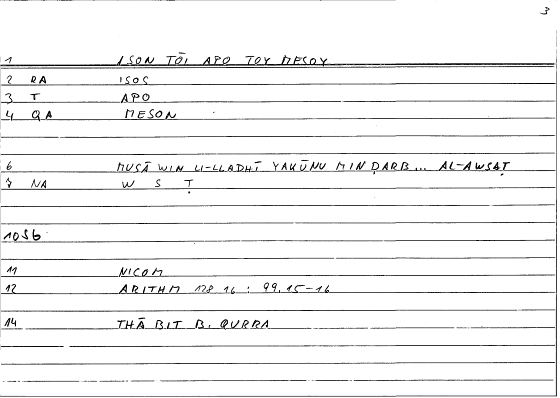 3
1 ISON TŌI APO TOY MESOY
2 RA ISOS
3 T APO
4 QA MESON
6 MUSĀWIN LI-LLADHĪ YAKŪNU MIN ḌARB... AL-AWSAṬ
7 NA W S Ṭ
1056
11 NICOM
12 ARITHM 128.16 : 99.15-16
14 THĀBIT B. QURRA